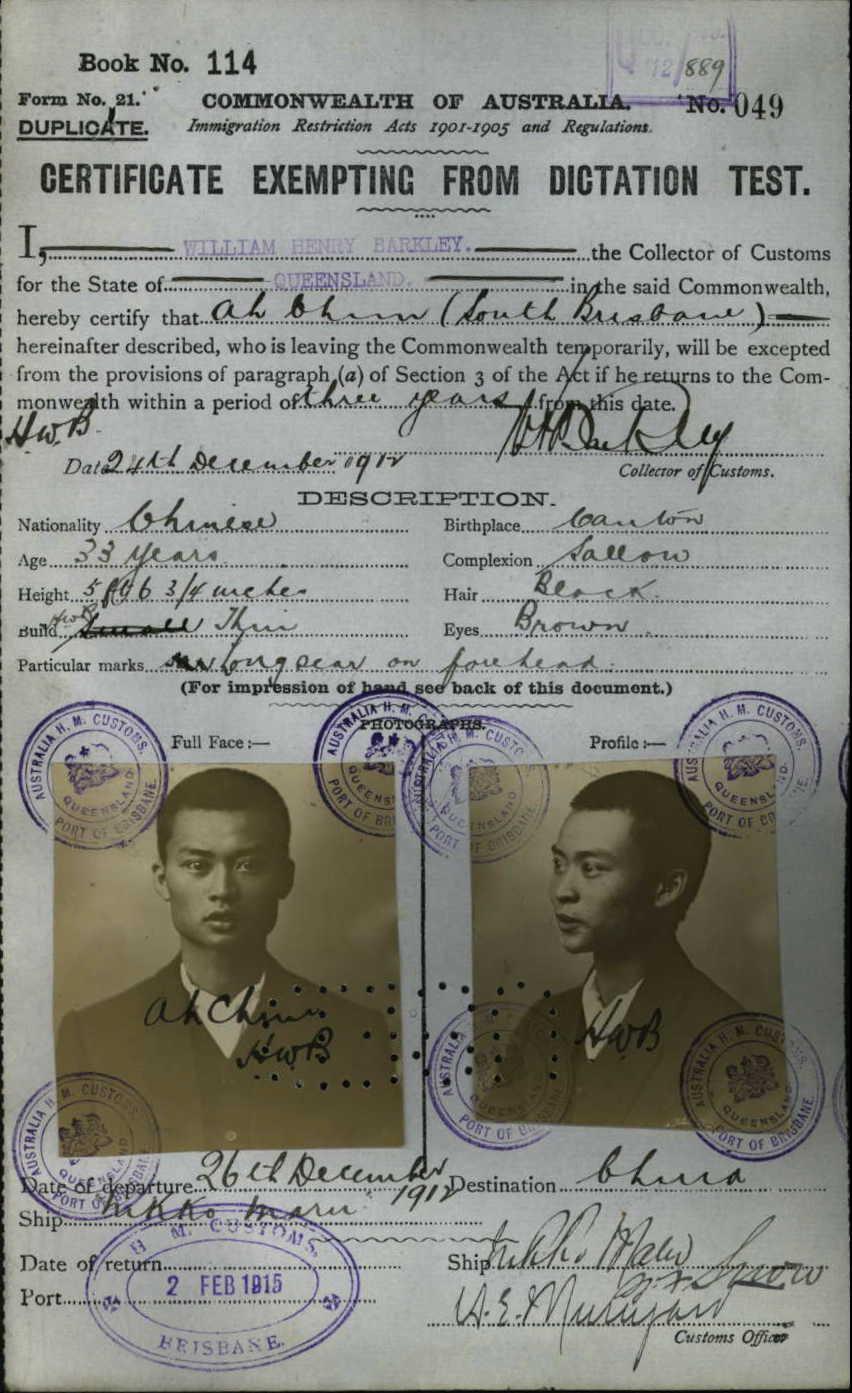 Book No. 114
12/889
Form No. 21.
COMMONWEALTH OF AUSTRALIA. No. 049
DUPLICATE.
Immigration Restriction Acts 1901-1905 and Regulations.
CERTIFICATE EXEMPTING FROM DICTATION TEST.
I, WILLIAM HENRY BARKLEY. the Collector of Customs
for the State of QUEENSLAND. in the said Commonwealth,
hereby certify that Ah Chim (South Brisbane)
hereinafter described, who is leaving the Commonwealth temporarily, will be excepted
from the provisions of paragraph (a) of Section 3 of the Act if he returns to the Com-
monwealth within a period of three years from this date.
HWB
Date 24th December 1912
Collector of Customs.
DESCRIPTION.
Nationality Chinese
Birthplace Canton
Age 33 years
Complexion Sallow
Height 5 ft 6 3/4 inches
Hair Black
Build Small Thin
Eyes Brown
Particular marks long scar on forehead
(For impression of hand see back of this document.)
PHOTOGRAPHS.
Full Face :—
Profile :—
AUSTRALIA H. M. CUSTOMS.
QUEENSLAND.
PORT OF BRISBANE
Ah Chim
HWB
HWB
Date of departure 26th December 1912
Destination China
Ship Nikko Maru
Date of return
Ship Nikko Maru
Port
H. M. CUSTOMS.
2 FEB 1915
BRISBANE.
Customs Officer